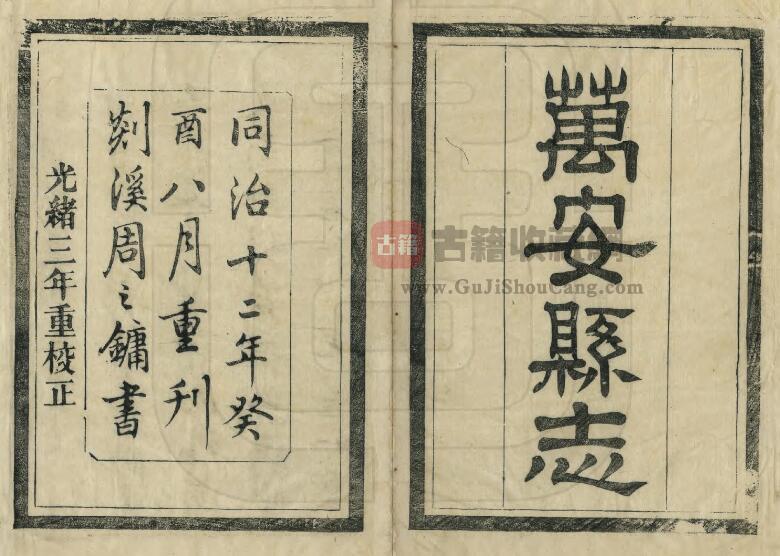 萬安縣志
同治十二年癸
酉八月重刊
剡溪周之鏞書
光緒三年重校正
古籍
古籍收藏網
www.GuJiShouCang.com